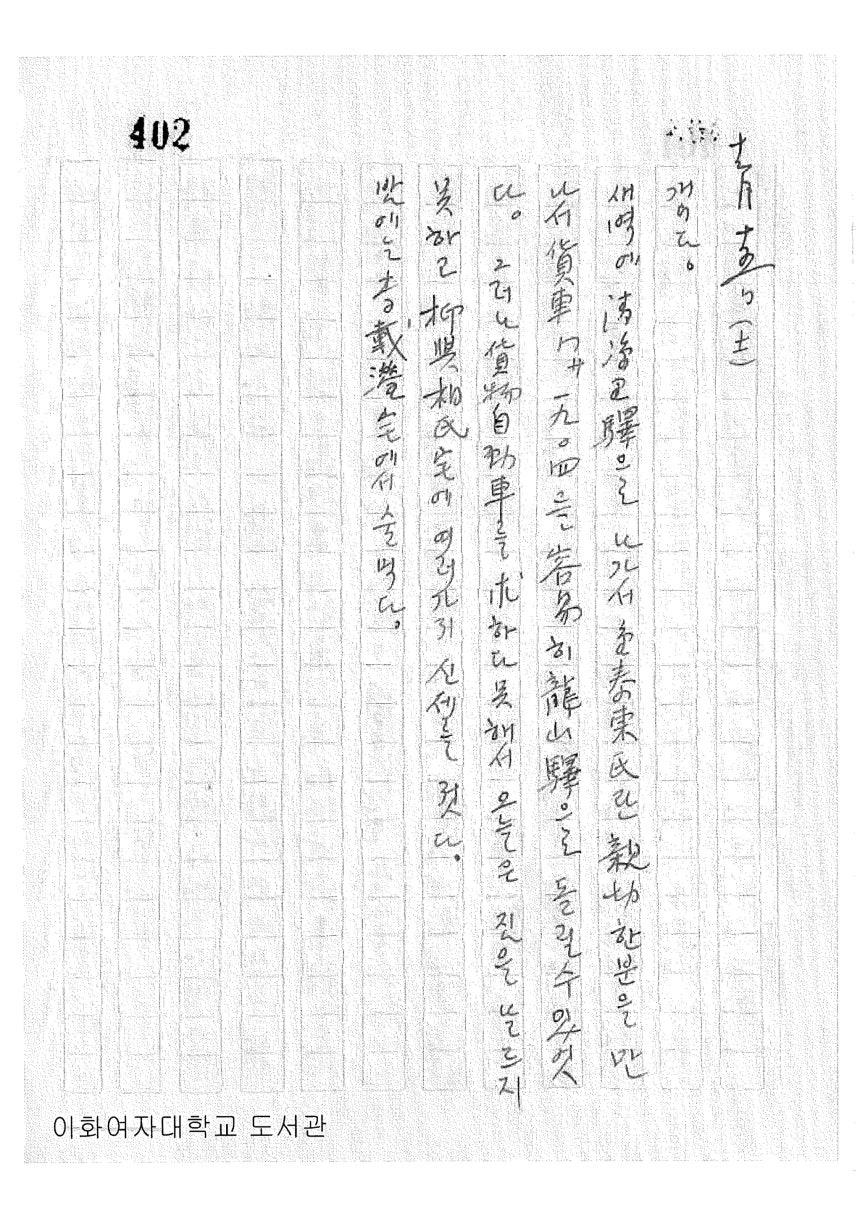 402
개이다。
새벽에 淸凉里驛으로 나가서 泰東氏란 親切한분을 만
나서 貨車 一九〇四을 容易히 龍山驛으로 돌릴수있엇
다。 그러나 貨物自動車를 求하다못해서 오늘은 짐을 날르지
못하고 柳興相氏宅에 여러가지 신세를 젓다。
밤에는 載瀅宅에서 술먹다。
이화여자대학교 도서관